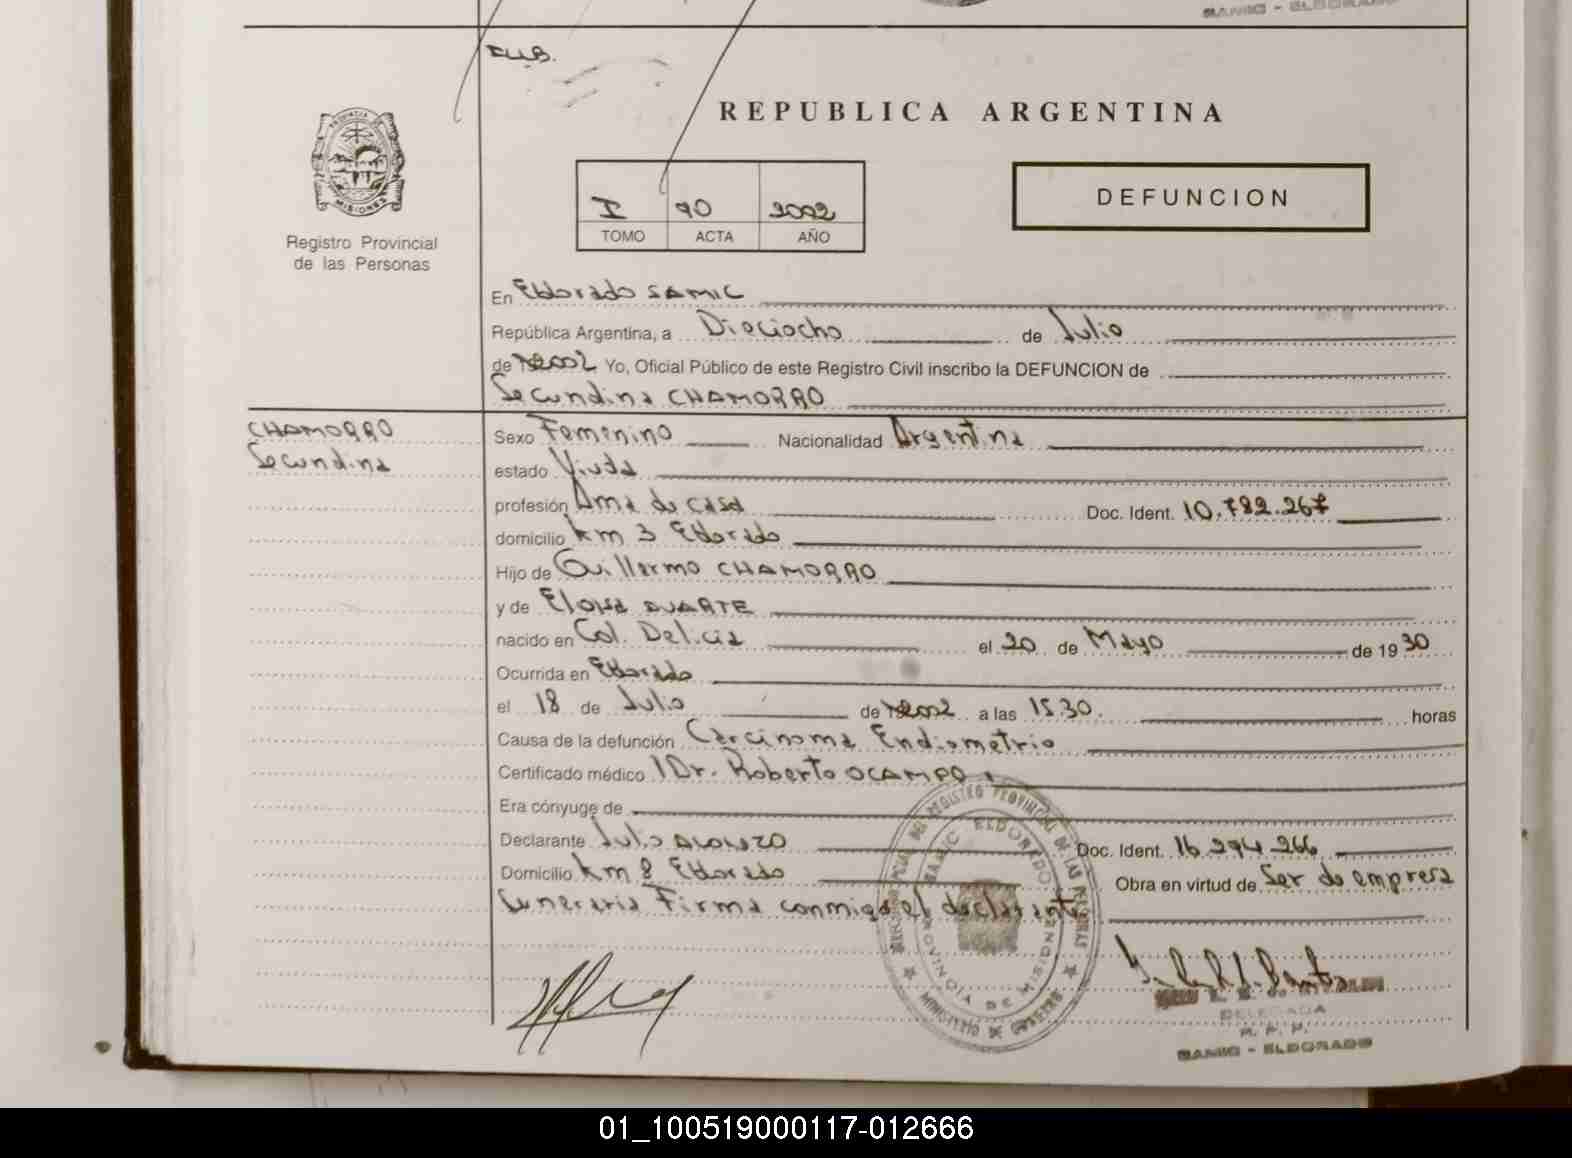 SAMIC - ELDORADO
REPUBLICA ARGENTINA
PROVINCIA DE
MISIONES
Registro Provincial
de las Personas
I 90 2002
TOMO ACTA AÑO
DEFUNCION
En Eldorado SAMIC
República Argentina, a Dieciocho de Julio
de 2002 Yo, Oficial Público de este Registro Civil inscribo la DEFUNCION de
Secundina CHAMORRO
CHAMORRO
Secundina
Sexo Femenino Nacionalidad Argentina
estado Viuda
profesión Ama de casa Doc. Ident. 10.782.267
domicilio Km 3 Eldorado
Hijo de Guillermo CHAMORRO
y de Eloisa DUARTE
nacido en Col. Delicia el 20 de Mayo de 1930
Ocurrida en Eldorado
el 18 de Julio de 2002 a las 15.30. horas
Causa de la defunción Carcinoma Endiometrio
Certificado médico Dr. Roberto OCAMPO
Era cónyuge de
Declarante Julio ALONZO Doc. Ident. 16.294.266
Domicilio Km 8 Eldorado Obra en virtud de Ser de empresa
Funeraria Firma conmigo el declarante
REGISTRO PROVINCIAL DE LAS PERSONAS
SAMIC ELDORADO
PROVINCIA DE MISIONES
MINISTERIO DE GOBIERNO
DELEGADA
R. P. P.
SAMIC - ELDORADO
01_100519000117-012666